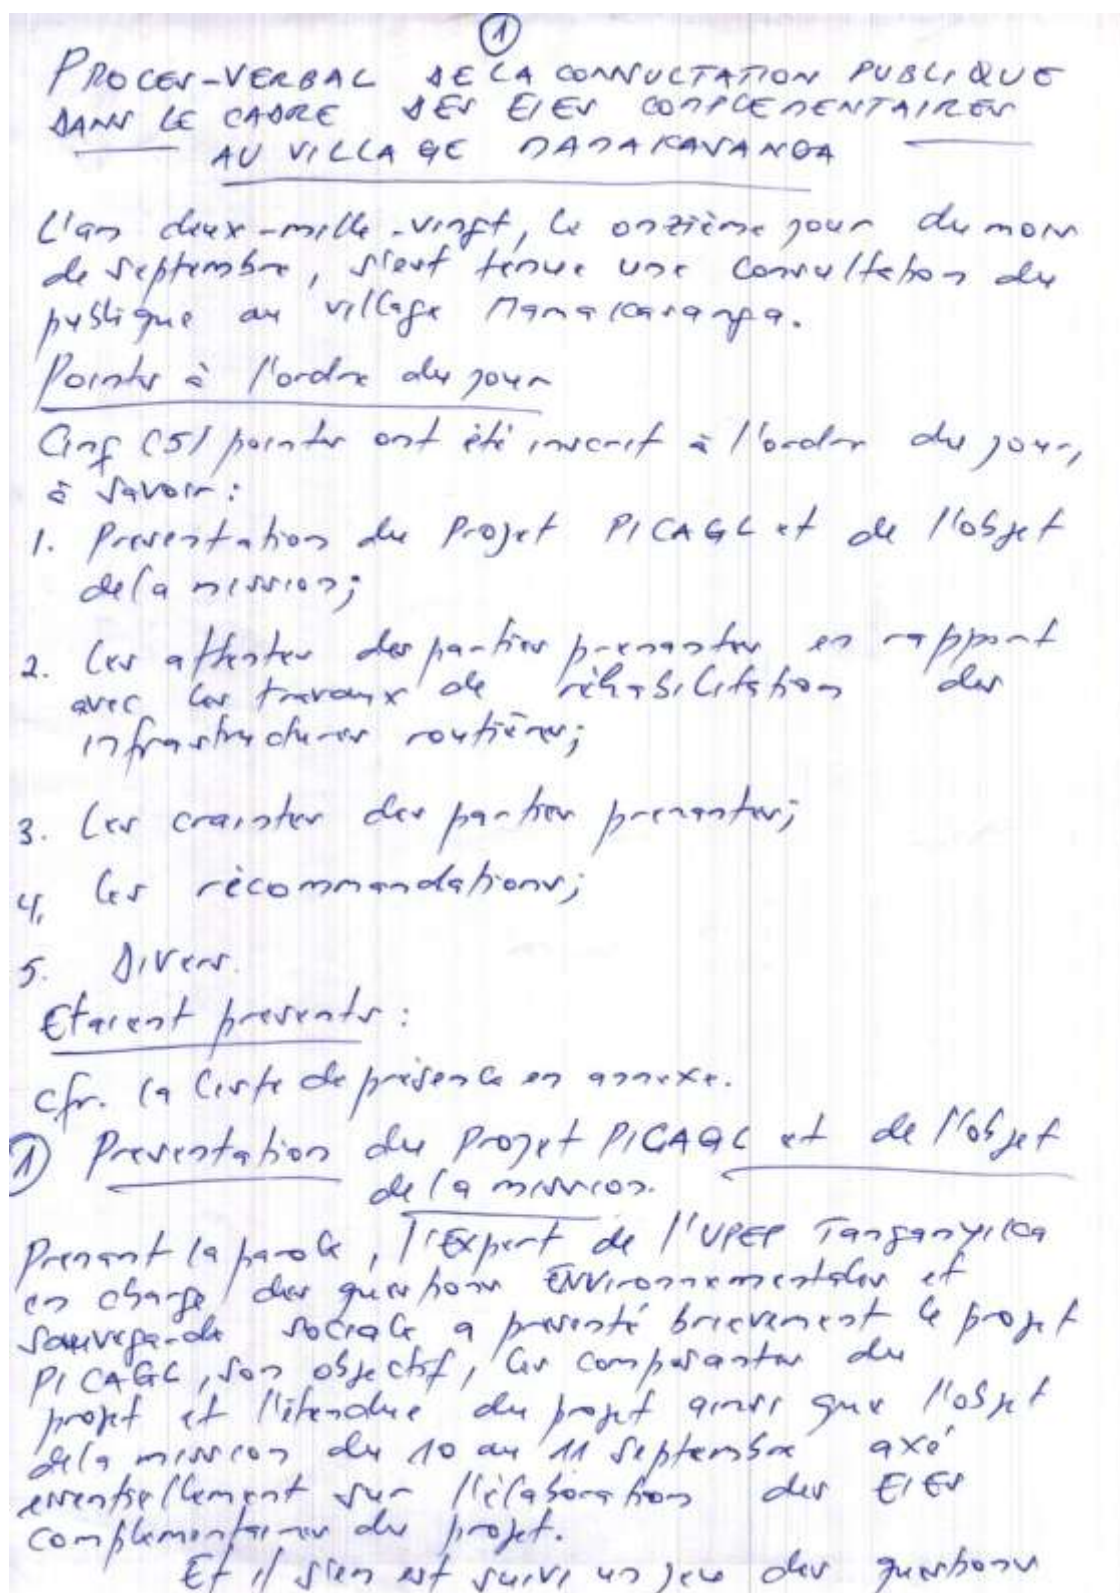 1
PROCES-VERBAL DE LA CONSULTATION PUBLIQUE
DANS LE CADRE DES EIES COMPLEMENTAIRES
AU VILLAGE MAMAKASANGA
L'an deux-mille-vingt, le onzième jour du mois
de septembre, s'est tenue une consultation du
publique au village Mamakasanga.
Points à l'ordre du jour
Cinq (5) points ont été inscrit à l'ordre du jour,
à savoir :
1. Presentation du Projet PICAGL et de l'objet
de la mission;
2. Les attentes des parties prenantes en rapport
avec les travaux de réhabilitation des
infrastructures routières;
3. Les craintes des parties prenantes;
4. Les récommandations;
5. Divers.
Etaient presents :
Cfr. la liste de présence en annexe.
1) Presentation du Projet PICAGL et de l'objet
de la mission.
Prenant la parole, l'Expert de l'UPEP Tanganyika
en charge des questions Environnementales et
sauvegarde sociale a presenté brievement le projet
PICAGL, son objectif, les composantes du
projet et l'étendue du projet ainsi que l'objet
de la mission du 10 au 11 Septembre axé
essentiellement sur l'élaboration des EIES
complementaires du projet.
Et il s'en est suivi un jeu des questions